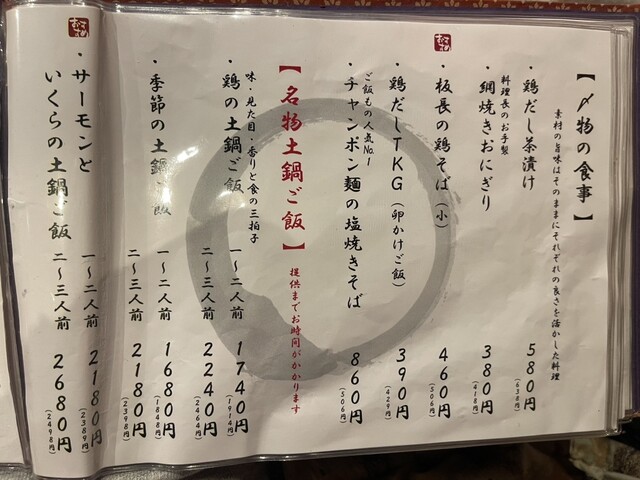 【〆物の食事】
素材の旨味はそのままにそれぞれの良さを活かした料理
・鶏だし茶漬け 580円
(638円)
料理長のお手製
・網焼きおにぎり 380円
(418円)
おすすめ
・板長の鶏そば(小) 460円
(506円)
・鶏だしTKG(卵かけご飯) 390円
(429円)
ご飯もの人気No.1
・チャンポン麺の塩焼きそば 860円
(506円)
【名物土鍋ご飯】
提供までお時間がかかります
味・見た目・香りと食の三拍子
・鶏の土鍋ご飯 一〜二人前 1740円
(1914円)
二〜三人前 2240円
(2464円)
・季節の土鍋ご飯 一〜二人前 1680円
(1848円)
二〜三人前 2180円
(2398円)
おすすめ
・サーモンと
いくらの土鍋ご飯 一〜二人前 2180円
(2389円)
二〜三人前 2680円
(2498円)